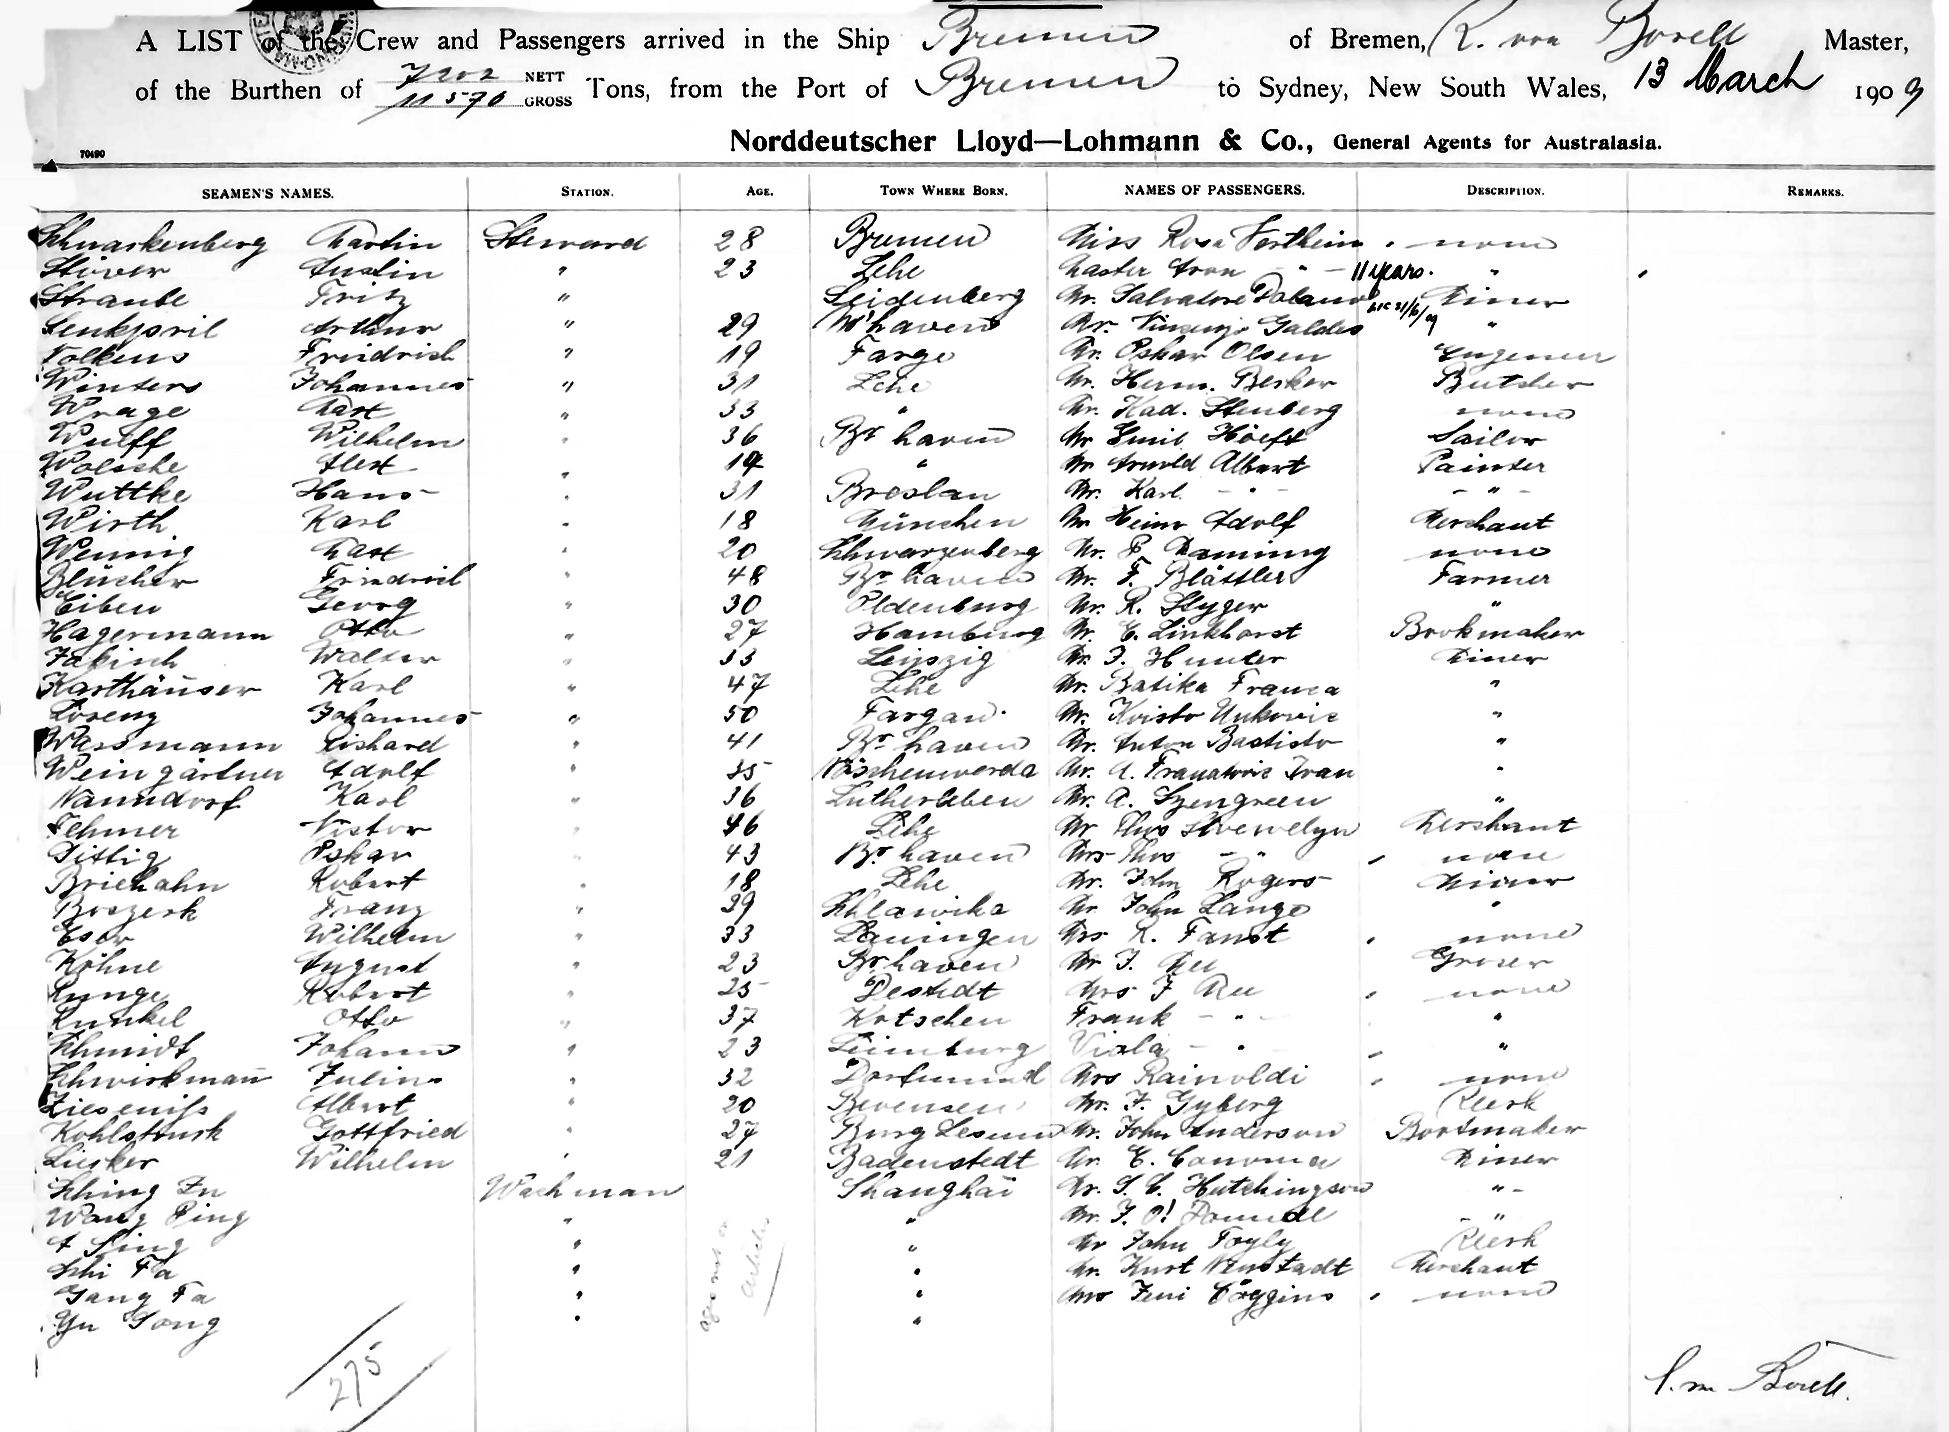 A LIST of the Crew and Passengers arrived in the Ship Bremen of Bremen, R. von Borell Master,
of the Burthen of 7202 NETT 11570 GROSS Tons, from the Port of Bremen to Sydney, New South Wales, 13 March 1909
Norddeutscher Lloyd—Lohmann & Co., General Agents for Australasia.
70490
SEAMEN'S NAMES. STATION. AGE. TOWN WHERE BORN. NAMES OF PASSENGERS. DESCRIPTION. REMARKS.
Schnackenberg Martin Steward 28 Bremen Miss Rosa Vertheim none
Stöver Austin " 23 Lehe Master Aron " 11 years. "
Straube Fritz " Seidenberg Mr. Salvatore Miner
Senkpeil Arthur " 29 W'haven Mr. Vincenzo Galdes "
Volkens Friedrich " 19 Farge Mr. Oskar Olsen Engeneer
Winters Johannes " 31 Lehe Mr. Herm. Becker Butcher
Wrage Max " 33 " Mr. Kad. Stenberg none
Wulff Wilhelm " 36 Br haven Mr Emil Höeft Sailor
Wolsche Alex " 19 " Mr Arnold Albert Painter
Wuttke Hans " 31 Breslau Mr. Karl " "
Wirth Karl " 18 München Mr Heinr Adolf Merchant
Wennig Max " 20 Schwarzenberg Mr. P. none
Blücher Friedrich " 48 Br haven Mr. F. Blättler Farmer
Eiben Georg " 30 Oldenburg Mr. R. Styger "
Hagermann Otto " 27 Hamburg Mr. E. Linkhorst Bookmaker
Jakisch Walter " 33 Leipzig Mr. J. Hunter Miner
Karthäuser Karl " 47 Lehe Mr. Batika Franca "
Lorenz Johannes " 50 Mr. Kristo Unkovic "
Wassmann Richard " 41 Br haven Mr. Anton Bastisto "
Weingärtner Adolf " 35 Mr. A. Franatovic Ivan "
Naundorf Karl " 36 Mr. A. Szengreen "
Fehmer Victor " 46 Lehe Mr Thos Merchant
Tittig Oskar " 43 Br haven Mrs Thos " none
Briehahn Robert " 18 Lehe Mr. John Rogers Miner
Boszerk Franz " 39 Schlawika Mr John Lange "
Eser Wilhelm " 33 Lauingen Mrs R. Faust none
Köhne August " 23 Br haven Mr J. Grocer
Runge Robert " 25 Destedt Mrs J none
Runkel Otto " 37 Kotschen Frank " "
Schmidt Johann " 23 Viola " "
Schwickmann Julius " 32 Dortmund Mrs Rainoldi none
Zieseniss Albert " 20 Bevensen Mr. F. Gyberg Clerk
Kohlstruck Gottfried " 27 Burg Lesum Mr. John Anderson Bootmaker
Lücker Wilhelm " 21 Badenstedt Mr. C. Canova Miner
Wachman Shanghai Mr. S. C. Hutchingson "
Wang Ping " " Mr. J. O'Donnell "
A Sing " " Mr John Foyly Clerk
Schi Fa " " Mr. Kurt Neustadt Merchant
Gang Fa " " Mrs Jeni Coggins none
Yu Song " "
ages not in Articles
275
R. von Borell.